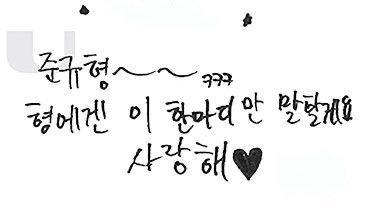 준규형~~ ㅋㅋㅋ
형에겐 이 한마디만 말할게요
사랑해♥